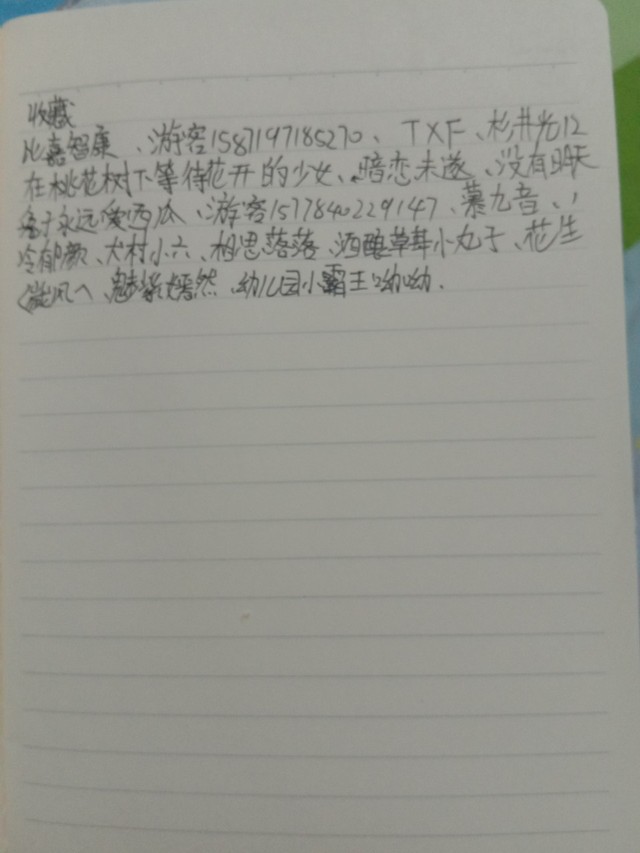 收藏
比嘉智康、游客1587197185270、TXF、杉井光12
在桃花树下等待花开的少女、暗恋未遂、没有明天
兔子永远爱西瓜、游客1577840229147、慕九音、
冷郁颜、犬村小六、相思落落、酒酿草莓小丸子、花生
微风へ、魅紫嫣然、幼儿园小霸王呦呦.